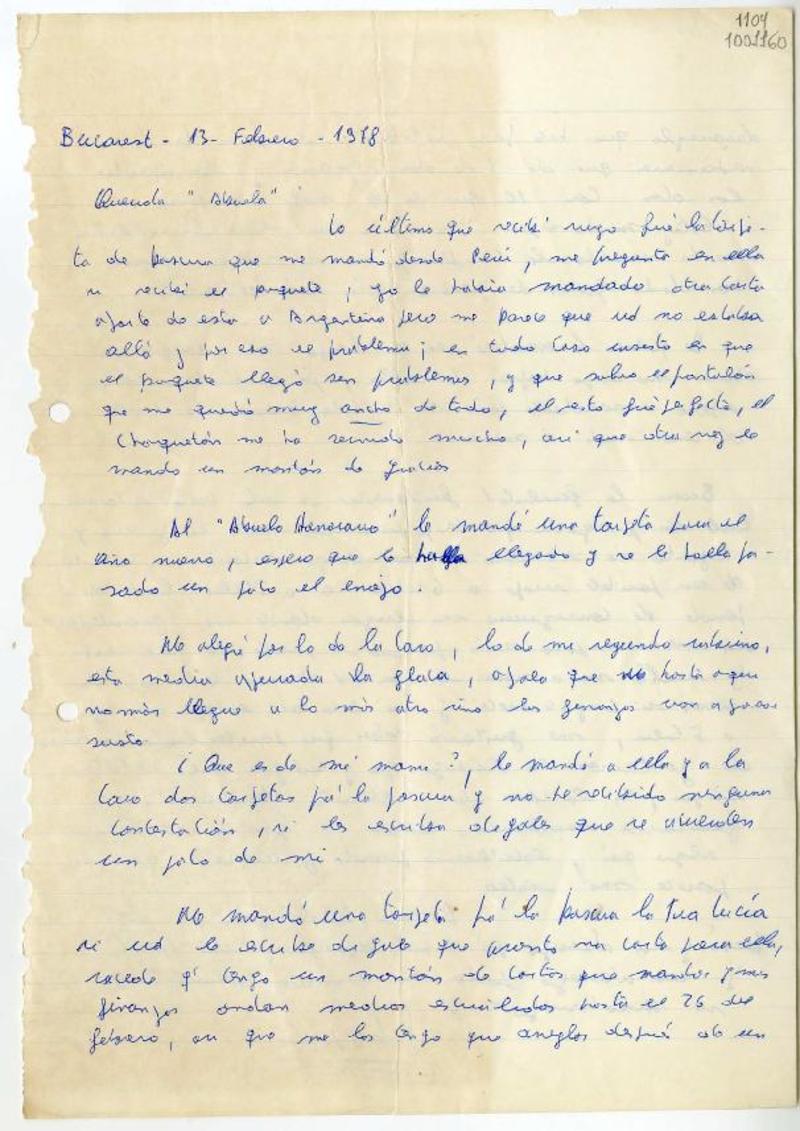 1104
1001160
Bucarest - 13 - Febrero - 1978
Querida "Abuela"
Lo último que recibí suyo fué la tarje-
ta de pascua que me mandó desde Perú, me pregunta en ella
si recibí el paquete, yo le había mandado otra carta
aparte de esta a Argentina pero me parece que ud no estaba
allá y por eso el problema; en todo caso insisto en que
el paquete llegó sin problemas, y que salvo el pantalón
que me quedó muy ancho de todo, el resto fué perfecto, el
chaquetón me ha servido mucho, así que otra vez le
mando un montón de gracias
Al "Abuelo Honorario" le mandé una tarjeta para el
año nuevo, espero que le halla llegado y se le halla pa-
sado un poco el enojo.
Me alegré por lo de la Caro, lo de mi segundo sobrino,
esta media apurada la flaca, ojala que hasta aqui
no más llegue a lo más otro sino las finanzas van a pasar
susto
¿Que es de mi mami?, le mandé a ella y a la
Caro dos tarjetas pá la pascua y no he recibido ninguna
contestación, si les escribe digales que se acuerden
un poco de mi
Me mandó una tarjeta pá la pascua la Tia Lucía
si ud le escribe digale que pronto va carta para ella,
sucede q' tengo un montón de cartas que mandar y mis
finanzas andan medias escuálidas hasta el 26 de
febrero, así que me las tengo que arreglar después de un